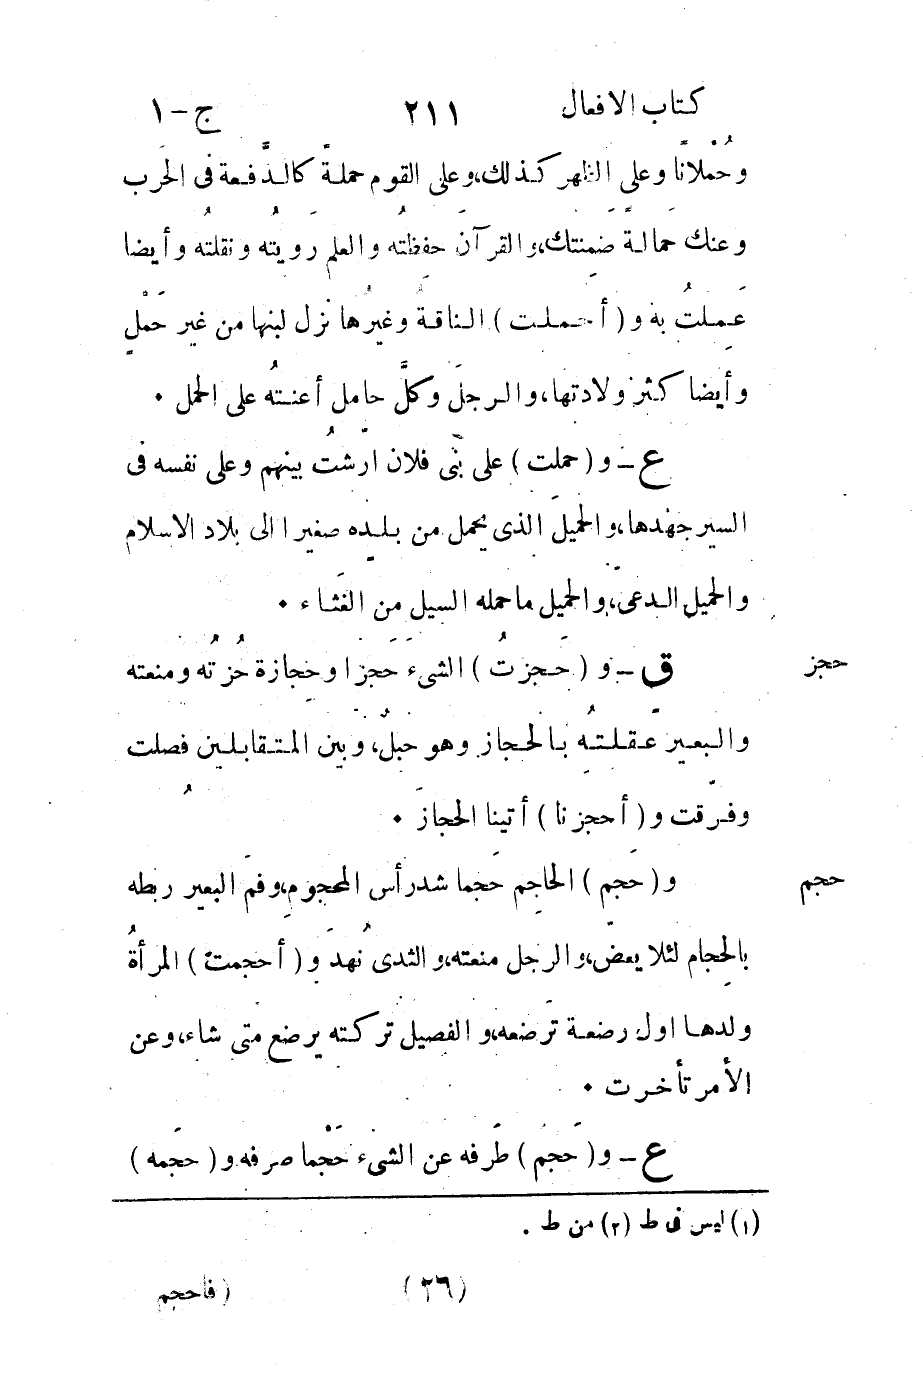 كتاب الافعال ٢١١ ج - ١
وحُمْلانًا وعلى الظهر كذلك، وعلى القوم حملةً كالدَّفعة فى الحَرب
وعنك حَمالةً ضَمِنتك، والقرآن حفِظتُه والعلم رويتُه ونقلتُه وأيضا
عَمِلتُ به و (أحملت) الناقةُ وغيرُها نزل لبنها من غير حَمْلٍ
وأيضا كثر ولادتها، والرجلَ وكلَّ حاملٍ أعنتُه على الحمل ٠
ع - و (حملت) على بَنى فلان ارشُت بينهم وعلى نفسه فى
السير جهَدها، والحميل الذى يحمل من بلده صغيرا الى بلاد الاسلام
والحميل الدعى، والحميل ما حمله السيل من الغثاء ٠
حجز
ق - و (حَجزتُ) الشىء حَجزا وحِجازة حُزتُه ومنعته
والبعير عقلتُه بالحجاز وهو حبلٌ، وبين المتقابلين فصلت
وفرّقت و (أحجزنا) أتينا الحجازَ ٠
حجم
و (حَجم) الحاجِم حَجما شد رأس المحجوم، وفمَ البعير ربطه
بالحِجام لئلا يعضّ، والرجل منعته، والثدىُ نَهد و (أحجمت) المرأةُ
ولدها اول رضعة تَرضعه، والفصيل تركته يرضع متى شاء، وعن
الأمر تأخرت ٠
ع - و (حَجَم) طَرفه عن الشىء حَجْما صرفه و (حجَمه)
(١) ليس فى ط (٢) من ط .
(٢٦) (فاحجم